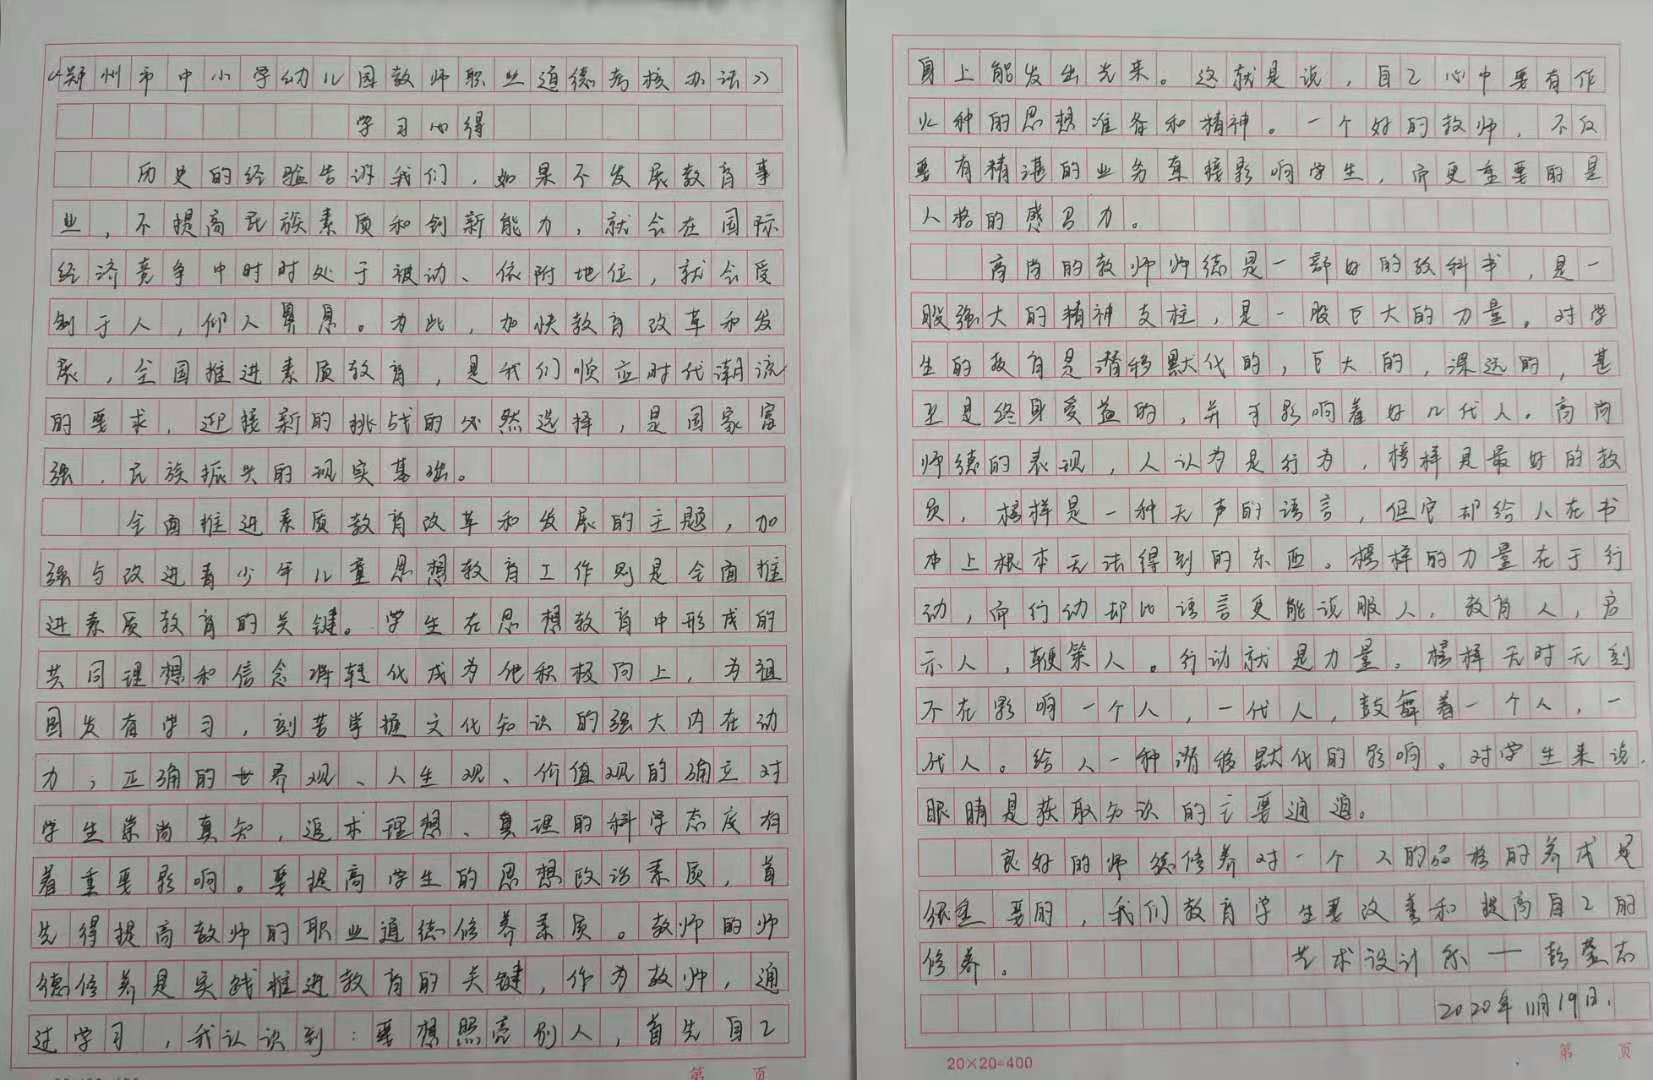 《郑州市中小学幼儿园教师职业道德考核办法》
学习心得
历史的经验告诉我们，如果不发展教育事
业，不提高民族素质和创新能力，就会在国际
经济竞争中时时处于被动、依附地位，就会受
制于人，仰人鼻息。为此，加快教育改革和发
展，全国推进素质教育，是我们顺应时代潮流
的要求，迎接新的挑战的必然选择，是国家富
强，民族振兴的现实基础。
全面推进素质教育改革和发展的主题，加
强与改进青少年儿童思想教育工作则是全面推
进素质教育的关键。学生在思想教育中形成的
共同理想和信念将转化成为他积极向上，为祖
国发奋学习，刻苦掌握文化知识的强大内在动
力；正确的世界观、人生观、价值观的确立对
学生崇尚真知，追求理想、真理的科学态度有
着重要影响。要提高学生的思想政治素质，首
先得提高教师的职业道德修养素质。教师的师
德修养是实践推进教育的关键，作为教师，通
过学习，我认识到：要想照亮别人，首先自己
身上能发出光来。这就是说，自己心中要有作
火种的思想准备和精神。一个好的教师，不仅
要有精湛的业务直接影响学生，而更重要的是
人格的感召力。
高尚的教师师德是一部好的教科书，是一
股强大的精神支柱，是一股巨大的力量。对学
生的教育是潜移默化的，巨大的，深远的，甚
至是终身受益的，并可影响着好几代人。高尚
师德的表现，人认为是行为，榜样是最好的教
员，榜样是一种无声的语言，但它却给人在书
本上根本无法得到的东西。榜样的力量在于行
动，而行动却比语言更能说服人，教育人，启
示人，鞭策人。行动就是力量。榜样无时无刻
不在影响一个人，一代人，鼓舞着一个人，一
代人。给人一种潜移默化的影响。对学生来说，
眼睛是获取知识的主要通道。
良好的师德修养对一个人的品格的养成是
很重要的，我们教育学生要改善和提高自己的
修养。 艺术设计系——彭莹志
2020年11月19日.
20×20=400
第 页
第 页